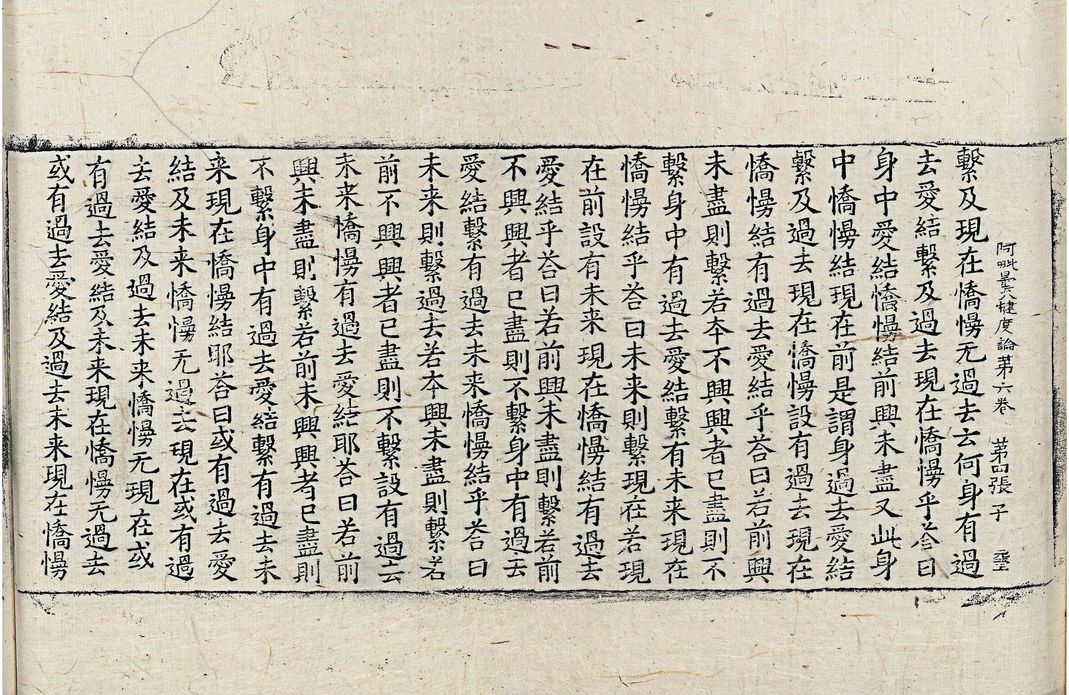 阿毗曇八揵度論第六卷　第四張　子　璧
繫及現在憍慢无過去云何身有過
去愛結繫及過去現在憍慢乎荅曰
身中愛結憍慢結前興未盡又此身
中憍慢結現在前是謂身過去愛結
繫及過去現在憍慢設有過去現在
憍慢結有過去愛結乎荅曰若前興
未盡則繫若夲不興興者已盡則不
繫身中有過去愛結繫有未来現在
憍慢結乎荅曰未来則繫現在若現
在前設有未来現在憍慢結有過去
愛結乎荅曰若前興未盡則繫若前
不興興者已盡則不繫身中有過去
愛結繫有過去未来憍慢結乎荅曰
未来則繫過去若夲興未盡則繫若
前不興興者已盡則不繫設有過去
未来憍慢有過去愛結耶荅曰若前
興未盡則繫若前未興興者已盡則
不繫身中有過去愛結繫有過去未
来現在憍慢結耶荅曰或有過去愛
結及未来憍慢无過去現在或有過
去愛結及過去未来憍慢无現在或
有過去愛結及未来現在憍慢无過去
或有過去愛結及過去未来現在憍慢